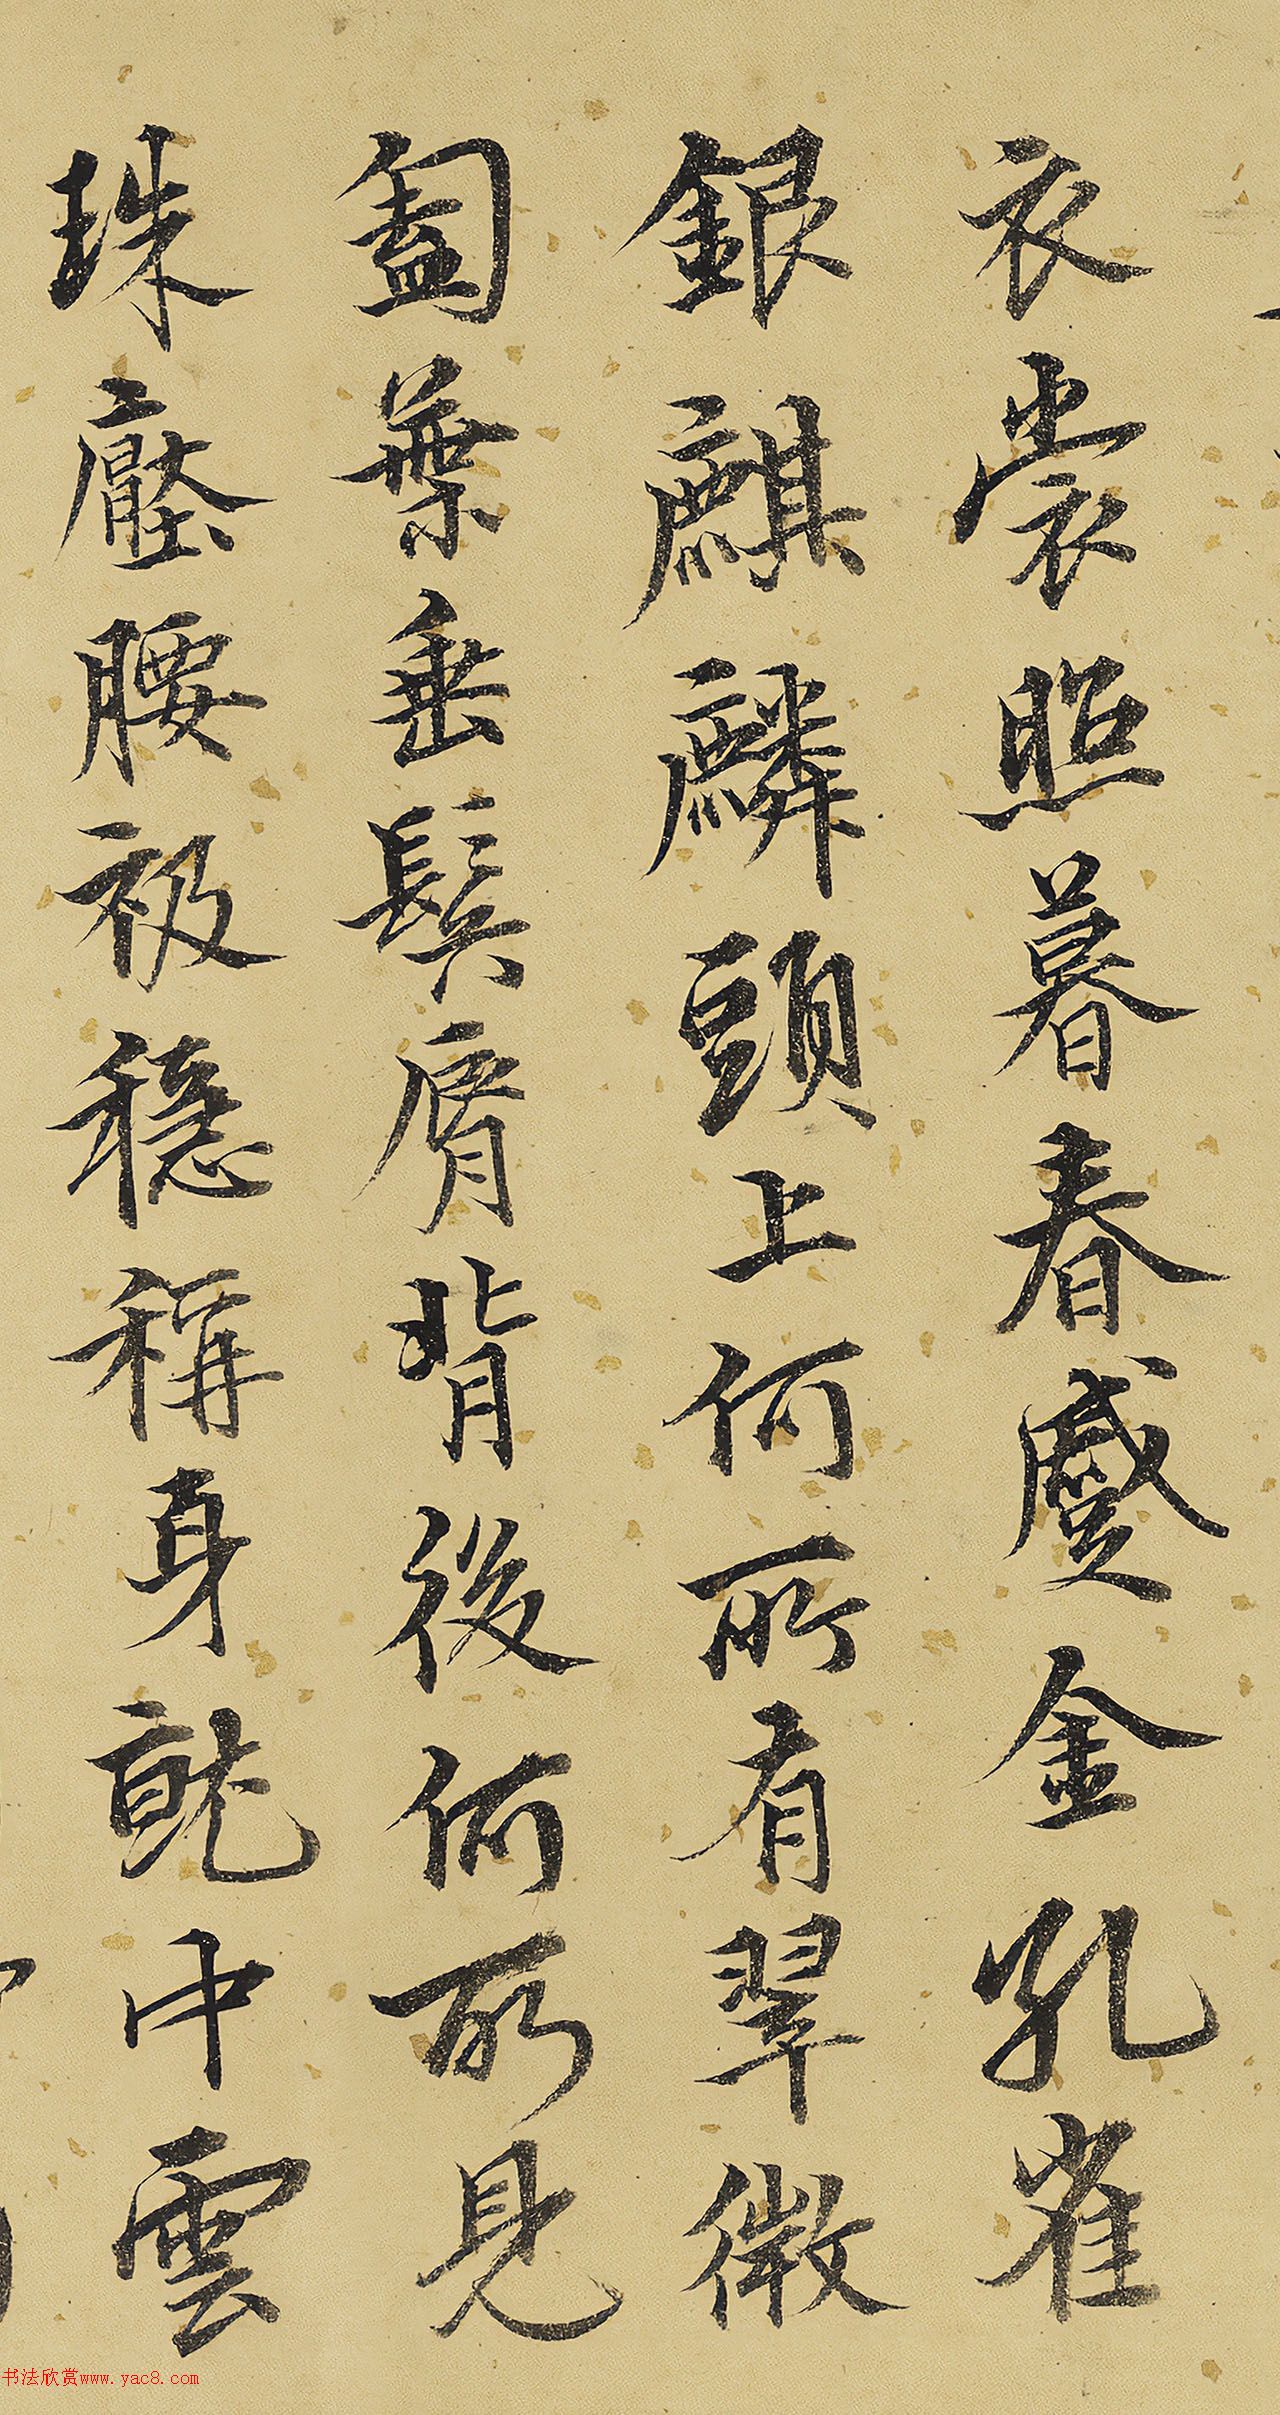 衣裳照暮春蹙金孔雀
銀麒麟頭上何所有翠微
㔩葉垂鬢脣背後何所見
珠壓腰衱穩稱身就中雲
书法欣赏www.yac8.com